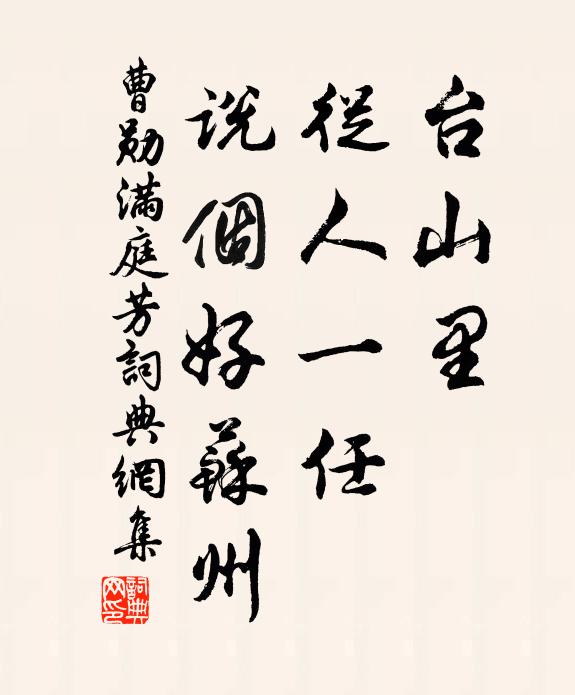 台山里
從人一任
說個好蘇州
曹勛滿庭芳詞典網集
詞典网印